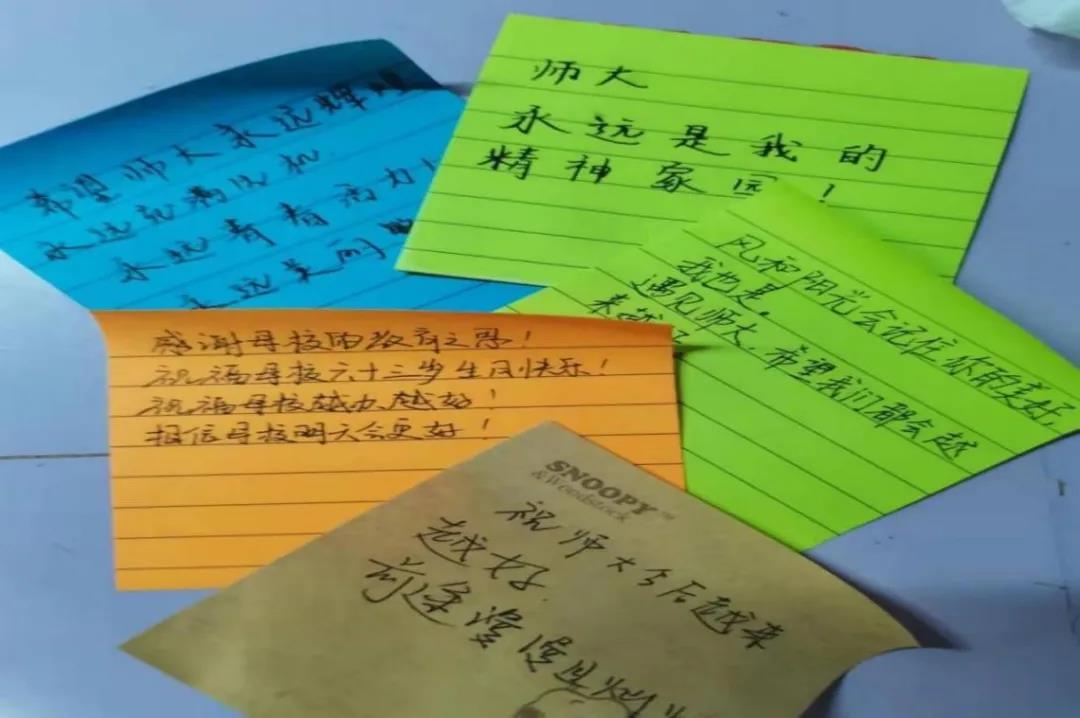 希望师大永远辉煌
永远充满生机
永远青春活力
永远美丽
师大
永远是我的
精神家园！
风和阳光会记住你的美好，
我也是。
遇见师大，希望我们都会越
来越
感谢母校的教育之恩！
祝福母校六十三岁生日快乐！
祝福母校越办越好！
相信母校明天会更好！
SNOOPY™
&Woodstock
祝师大今后越来
越好，
前途漫漫且灿